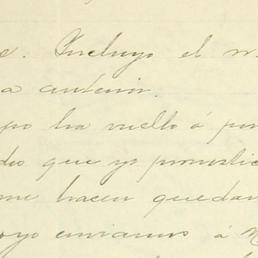 e. Incluyo el
a anterior.
po ha vuelto á pon
do que yo pronostic
me hacen quedar
oyo enviarnos á